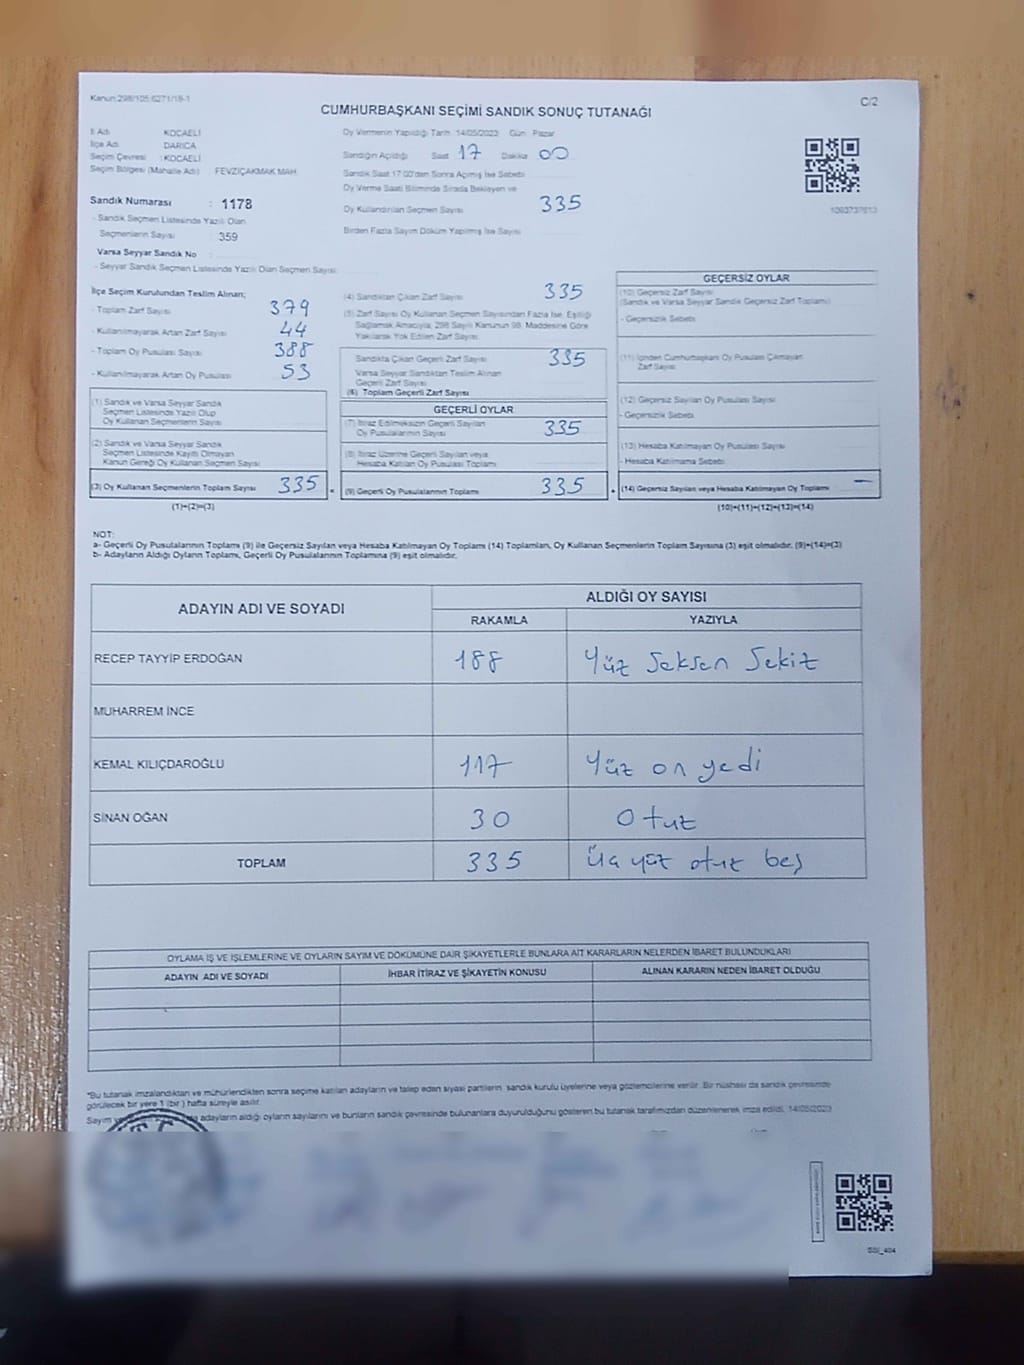 Kanun:298/105,6271/18-1
C/2
CUMHURBAŞKANI SEÇİMİ SANDIK SONUÇ TUTANAĞI
İl Adı KOCAELİ
İlçe Adı DARICA
Seçim Çevresi : KOCAELİ
Seçim Bölgesi (Mahalle Adı) FEVZİÇAKMAK MAH.
Sandık Numarası : 1178
- Sandık Seçmen Listesinde Yazılı Olan
Seçmenlerin Sayısı : 359
Varsa Seyyar Sandık No :
- Seyyar Sandık Seçmen Listesinde Yazılı Olan Seçmen Sayısı:
Oy Vermenin Yapıldığı Tarih: 14/05/2023 Gün: Pazar
Sandığın Açıldığı Saat 17 Dakika 00
Sandık Saat 17:00'dan Sonra Açılmış İse Sebebi
Oy Verme Saati Bitiminde Sırada Bekleyen ve
Oy Kullandırılan Seçmen Sayısı 335
Birden Fazla Sayım Döküm Yapılmış İse Sayısı
İlçe Seçim Kurulundan Teslim Alınan;
- Toplam Zarf Sayısı 379
- Kullanılmayarak Artan Zarf Sayısı 44
- Toplam Oy Pusulası Sayısı 388
- Kullanılmayarak Artan Oy Pusulası 53
(1) Sandık ve Varsa Seyyar Sandık
Seçmen Listesinde Yazılı Olup
Oy Kullanan Seçmenlerin Sayısı
(2) Sandık ve Varsa Seyyar Sandık
Seçmen Listesinde Kayıtlı Olmayan
Kanun Gereği Oy Kullanan Seçmen Sayısı
(3) Oy Kullanan Seçmenlerin Toplam Sayısı 335
(1)+(2)=(3)
(4) Sandıktan Çıkan Zarf Sayısı 335
(5) Zarf Sayısı Oy Kullanan Seçmen Sayısından Fazla İse, Eşitliği
Sağlamak Amacıyla; 298 Sayılı Kanunun 98. Maddesine Göre
Yakılarak Yok Edilen Zarf Sayısı
Sandıkta Çıkan Geçerli Zarf Sayısı 335
Varsa Seyyar Sandıktan Teslim Alınan
Geçerli Zarf Sayısı
(6) Toplam Geçerli Zarf Sayısı
GEÇERLİ OYLAR
(7) İtiraz Edilmeksizin Geçerli Sayılan
Oy Pusulalarının Sayısı 335
(8) İtiraz Üzerine Geçerli Sayılan veya
Hesaba Katılan Oy Pusulası Toplamı
(9) Geçerli Oy Pusulalarının Toplamı 335
GEÇERSİZ OYLAR
(10) Geçersiz Zarf Sayısı
(Sandık ve Varsa Seyyar Sandık Geçersiz Zarf Toplamı)
- Geçersizlik Sebebi
(11) İçinden Cumhurbaşkanı Oy Pusulası Çıkmayan
Zarf Sayısı
(12) Geçersiz Sayılan Oy Pusulası Sayısı
- Geçersizlik Sebebi
(13) Hesaba Katılmayan Oy Pusulası Sayısı
- Hesaba Katılmama Sebebi
(14) Geçersiz Sayılan veya Hesaba Katılmayan Oy Toplamı —
(10)+(11)+(12)+(13)=(14)
NOT:
a- Geçerli Oy Pusulalarının Toplamı (9) ile Geçersiz Sayılan veya Hesaba Katılmayan Oy Toplamı (14) Toplamları, Oy Kullanan Seçmenlerin Toplam Sayısına (3) eşit olmalıdır. (9)+(14)=(3)
b- Adayların Aldığı Oyların Toplamı, Geçerli Oy Pusulalarının Toplamına (9) eşit olmalıdır.
ADAYIN ADI VE SOYADI
ALDIĞI OY SAYISI
RAKAMLA YAZIYLA
RECEP TAYYİP ERDOĞAN 188 Yüz Seksen Sekiz
MUHARREM İNCE
KEMAL KILIÇDAROĞLU 117 Yüz on yedi
SİNAN OĞAN 30 Otuz
TOPLAM 335 Üç yüz otuz beş
OYLAMA İŞ VE İŞLEMLERİNE VE OYLARIN SAYIM VE DÖKÜMÜNE DAİR ŞİKAYETLERLE BUNLARA AİT KARARLARIN NELERDEN İBARET BULUNDUKLARI
ADAYIN ADI VE SOYADI İHBAR İTİRAZ VE ŞİKAYETİN KONUSU ALINAN KARARIN NEDEN İBARET OLDUĞU
*Bu tutanak imzalandıktan ve mühürlendikten sonra seçime katılan adayların ve talep eden siyasi partilerin sandık kurulu üyelerine veya gözlemcilerine verilir. Bir nüshası da sandık çevresinde
görülecek bir yere 1 (bir) hafta süreyle asılır.
Sayım adayların aldığı oyların sayılarını ve bunların sandık çevresinde bulunanlara duyurulduğunu gösteren bu tutanak tarafımızdan düzenlenerek imza edildi. 14/05/2023
SSI_404